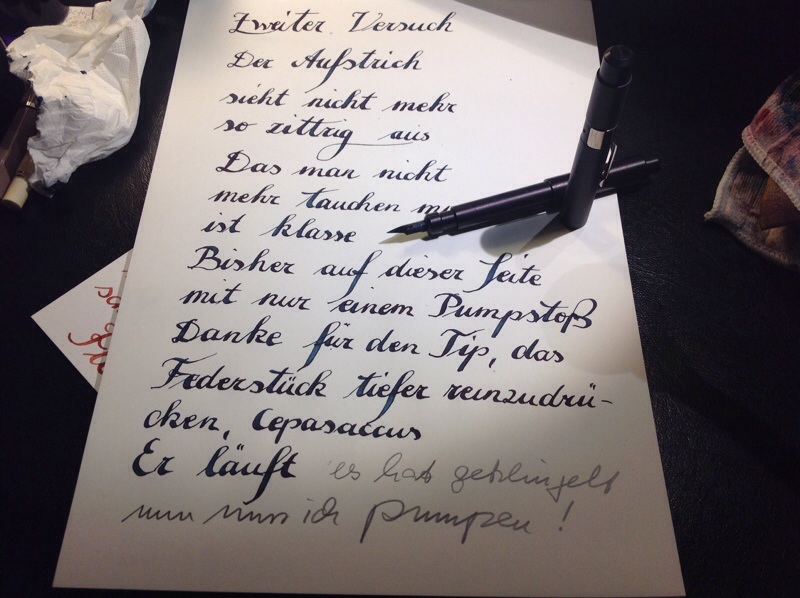 Zweiter Versuch
Der Aufstrich
sieht nicht mehr
so zittrig aus
Das man nicht
mehr tauchen
ist klasse
Bisher auf dieser Seite
mit nur einem Pumpstoß
Danke für den Tip, das
Federstück tiefer reinzudrü-
cken, Cepasaccus
Er läuft es hat geklingelt
nun muss ich pumpen!